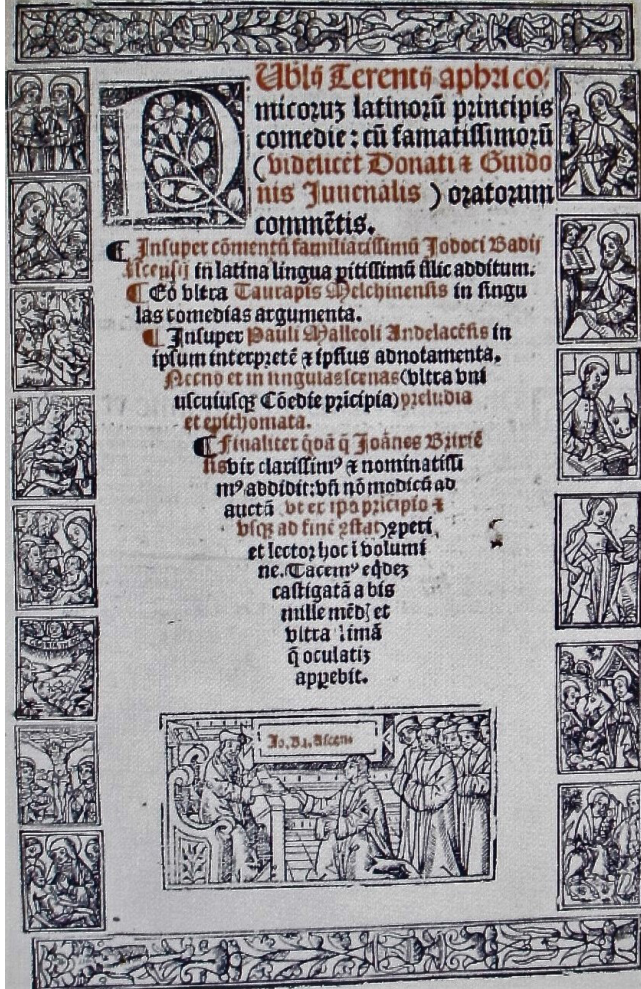 PUblij Terentij aphri co-
micoruʒ latinorū principis
comedie : cū famatissimorū
(videlicet Donati ⁊ Guido
nis Juuenalis ) oratorum
commētis.
¶ Insuper cōmentū familiarissimū Jodoci Badij
Ascensij in latina lingua pitissimū illic additum.
¶ Eō vltra Taurapis Melchinensis in singu
las comedias argumenta.
¶ Insuper Pauli Malleoli Andelacēsis in
ipsum interpretē ⁊ ipsius adnotamenta.
Necnō et in singulas scenas (vltra vni
uscuiusqꝫ Cōedie pricipia) preludia
et epichomata.
¶ Finaliter qđā q̄ Joānes
vir clarissimꝰ ⁊ nominatissi
mꝰ addidit: vn̄ nō modicū ad
auctā vt ex ipo pricipio ⁊
vsqꝫ ad finē ꝯstat) ꝛperi
et lector hoc i volumi
ne. Tacemꝰ eqdeʒ
castigatā a bis
mille mēdꝭ et
vltra limā
q̄ oculatiʒ
apꝑebit.
Jo. Ba. Ascens